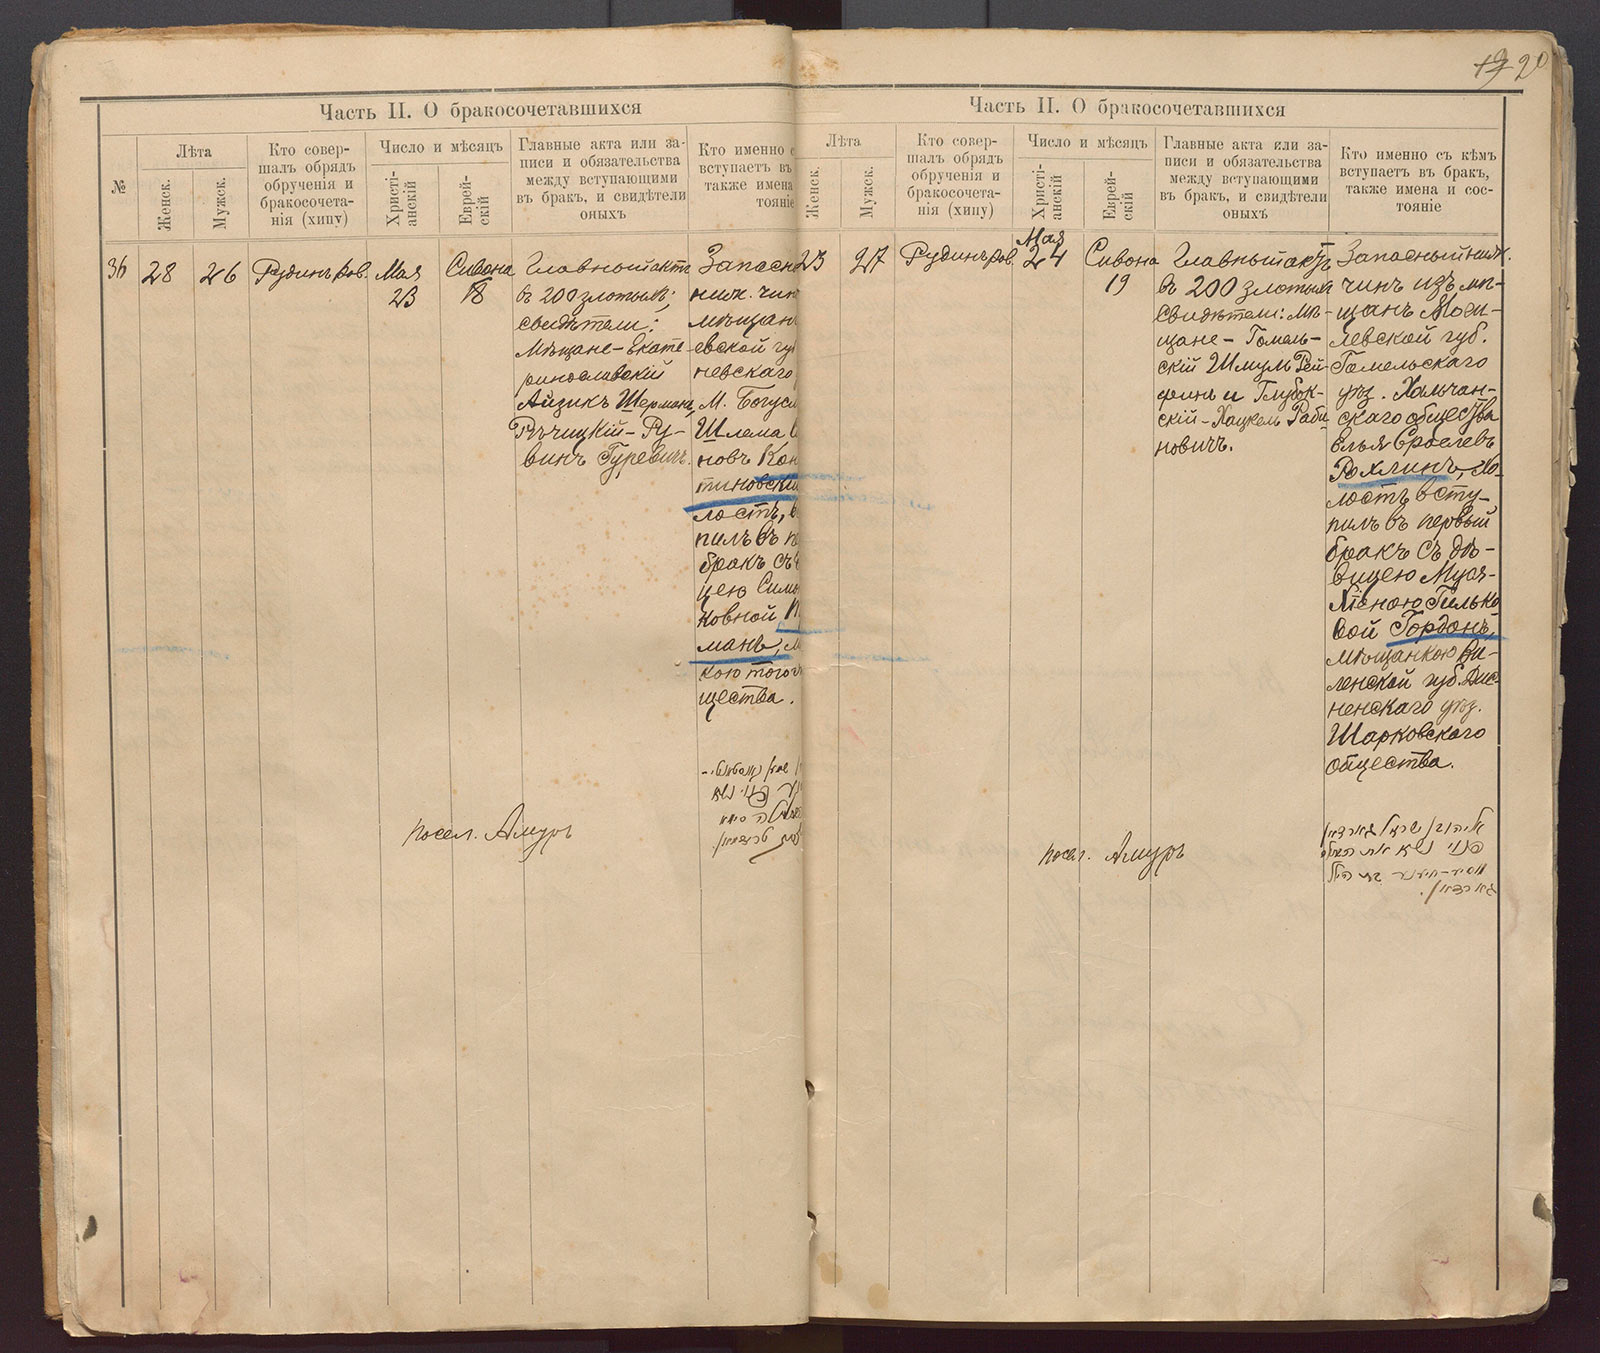 19 20
Часть II. О бракосочетавшихся
№
Лѣта
Женск.
Мужск.
Кто совер-
шалъ обрядъ
обрученія и
бракосочета-
нія (хипу)
Число и мѣсяцъ
Христі-
анскій
Еврей-
скій
Главные акта или за-
писи и обязательства
между вступающими
въ бракъ, и свидѣтели
оныхъ
Кто именно с
вступаетъ въ
также имена
тояніе
36
28
26
Рудинъ ков.
Мая
23
Сивона
18
Главный актъ
въ 200 злотыхъ;
свидѣтели:
Мѣщане - Екате-
ринославскій
Айзикъ Шерманъ,
Рѣчицкій - Ру-
винъ Гуревичъ.
Запасн
ниж. чин
мѣщан
евской гу
невскаго
М. Богусл
Шлема
новъ Кон
тиновскі
лостъ, в
пилъ въ п
бракъ съ
цею Симо
ковной
манъ, м
кою того ж
щества.
посел. Амуръ
Часть II. О бракосочетавшихся
Лѣта
Женск.
Мужск.
Кто совер-
шалъ обрядъ
обрученія и
бракосочета-
нія (хипу)
Число и мѣсяцъ
Христі-
анскій
Еврей-
скій
Главные акта или за-
писи и обязательства
между вступающими
въ бракъ, и свидѣтели
оныхъ
Кто именно съ кѣмъ
вступаетъ въ бракъ,
также имена и сос-
тояніе
23
27
Рудинъ ков.
Мая
24
Сивона
19
Главный актъ
въ 200 злотыхъ
Свидѣтели: Мѣ-
щане - Гомель-
скій Шмулъ Рей-
финъ и Глубок-
скій - Хацкель Раби-
новичъ.
Запасный ниж.
чинъ изъ мѣ-
щанъ Моги-
левской губ.
Гомельскаго
уѣз. Хальчан-
скаго общества
Елья Сроелевъ
Рохлинъ, хо-
лостъ всту-
пилъ въ первый
бракъ съ дѣ-
вицею Муся-
Хѣною Гилько-
вой Гордонъ,
мѣщанкою Ви-
ленской губ. Дис-
ненскаго уѣз.
Шарковскаго
общества.
посел. Амуръ